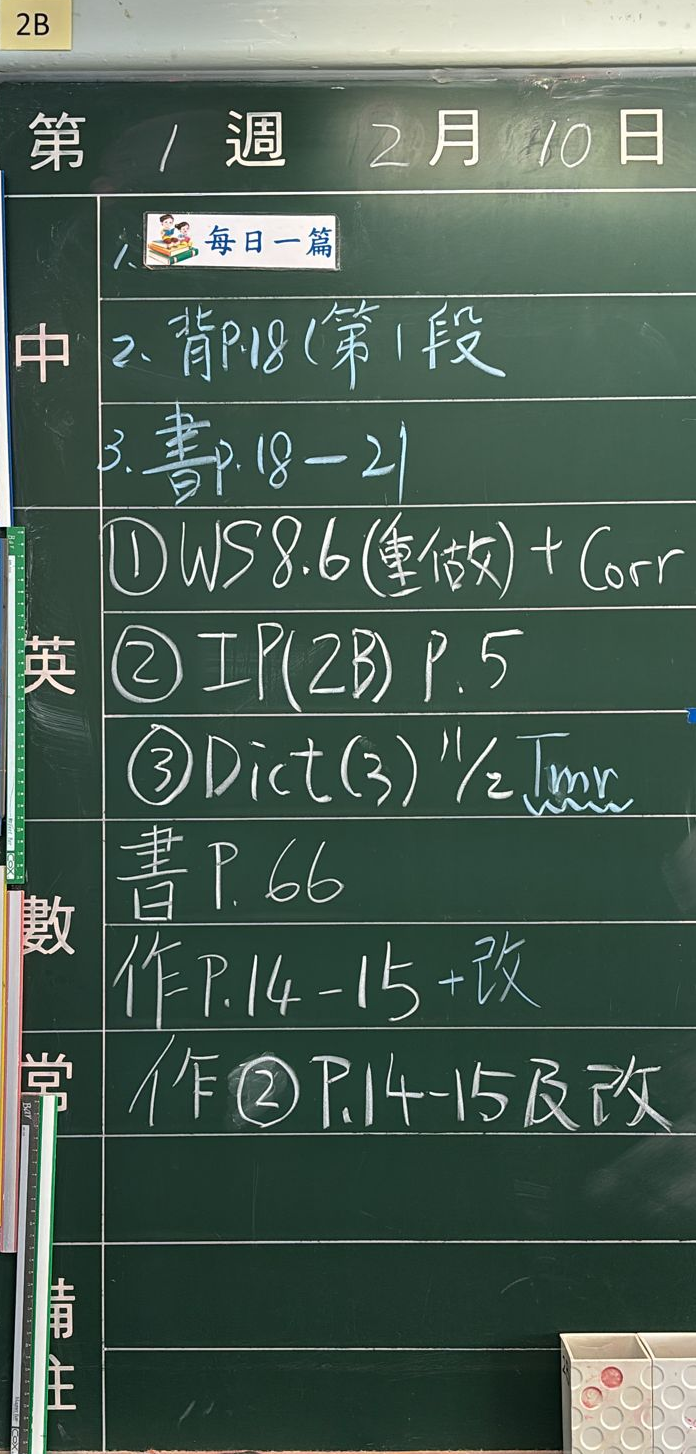 2B
第 1 週 2 月 10 日
中
1. 每日一篇
2、背P.18(第1段
3. 書p.18-21
英
① WS 8.6(重做)+Corr
② IP(2B) P.5
③ Dict(3) 11/2 Tmr
數
書 P. 66
作P.14-15+改
常
作② P.14-15及改
備註